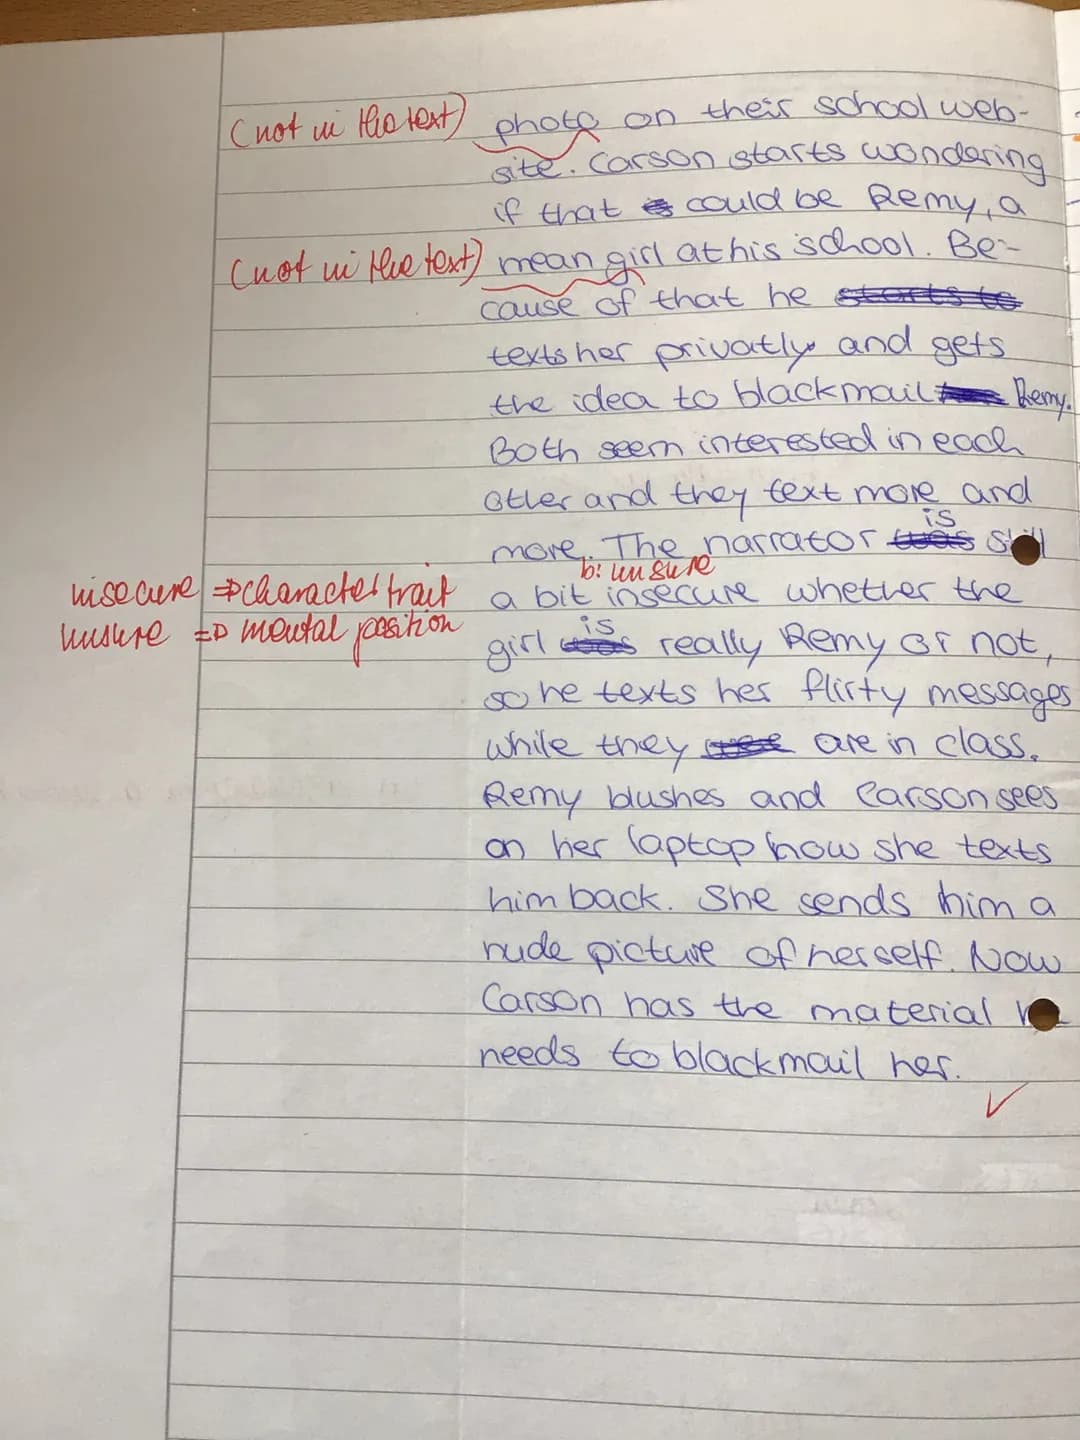 (not in the text) photo on their school web-
site. Carson starts wondering
if that could be Remy, a
(not in the text) mean girl at his school. Be-
cause of that he starts to
texts her privatly and gets
the idea to blackmail Remy.
Both seem interested in each
other and they text more and
is
more. The narrator was still
b: unsure
insecure ⇒ character trait a bit insecure whether the
is
unsure ⇒ mental position girl was really Remy or not,
so he texts her flirty messages
while they are in class.
Remy blushes and Carson sees
on her laptop how she texts
him back. She sends him a
nude picture of herself. Now
Carson has the material
needs to blackmail her.
✓